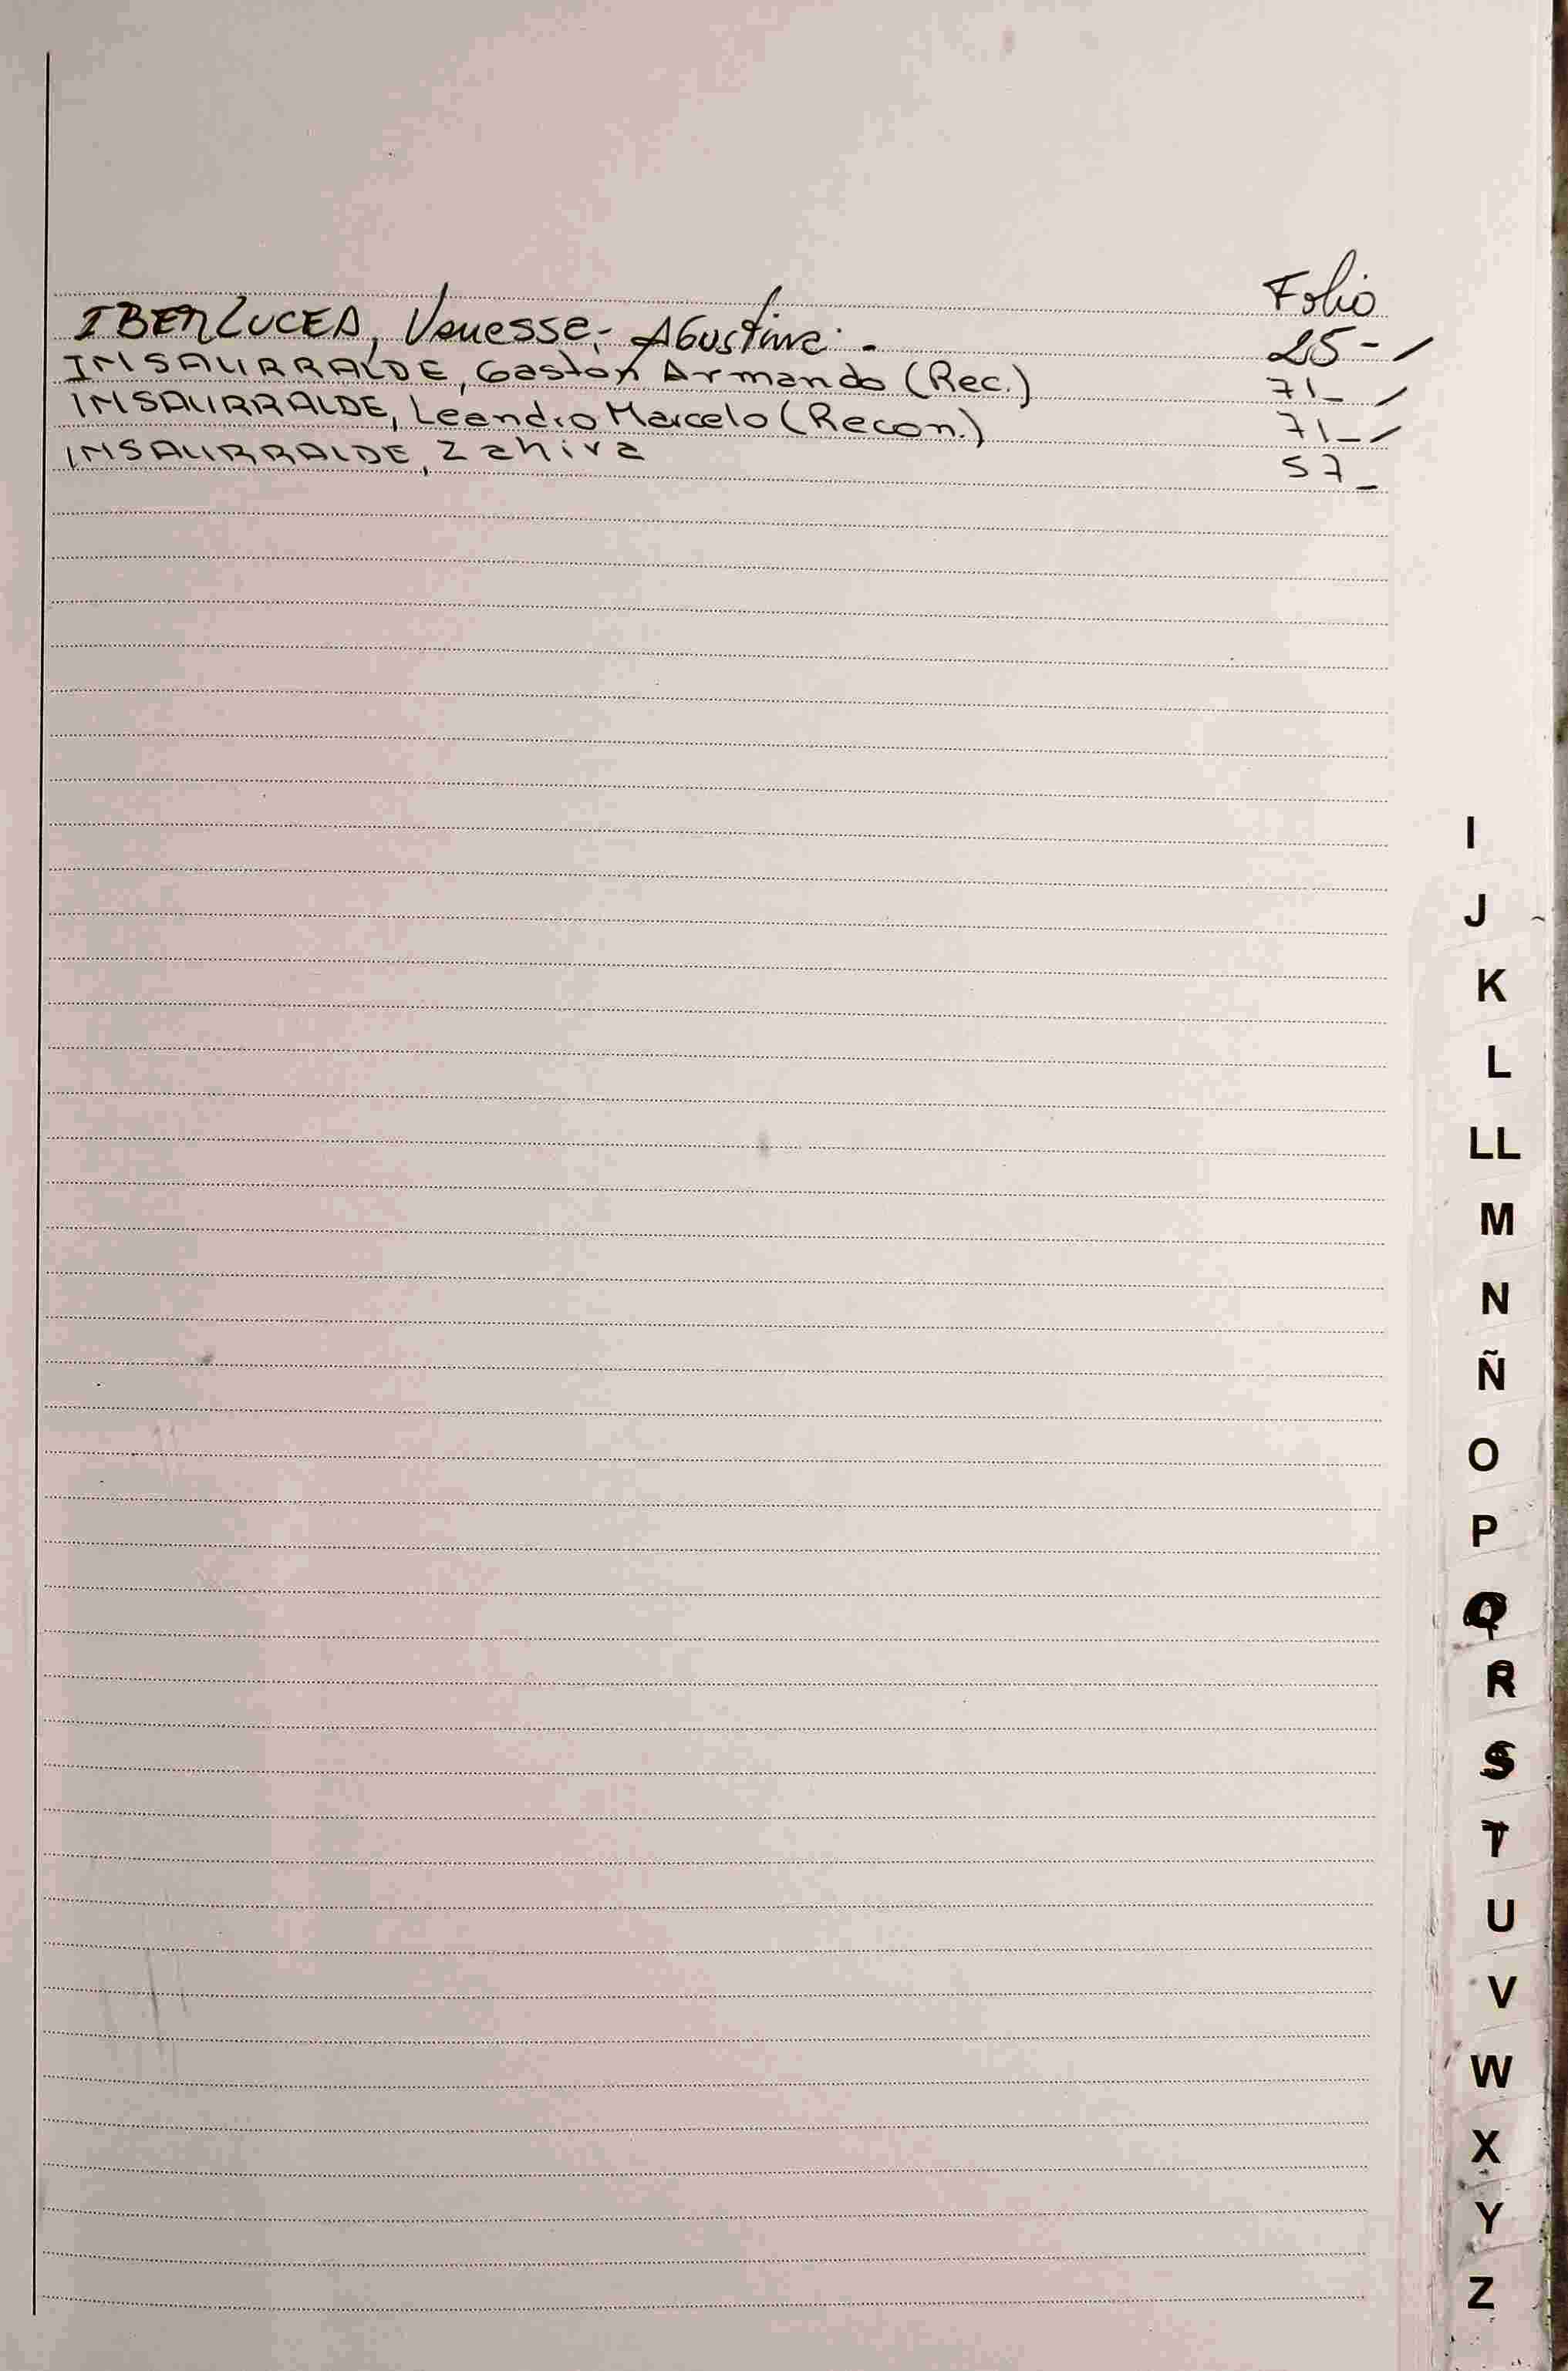 Folio
IBERLUCEA, Vanessa, Agustina. - 25 -
INSAURRALDE, Gastón Armando (Rec.) 71 -
INSAURRALDE, Leandro Marcelo (Recon.) 71 -
INSAURRALDE, Zahira 57 -
I
J
K
L
LL
M
N
Ñ
O
P
Q
R
S
T
U
V
W
X
Y
Z